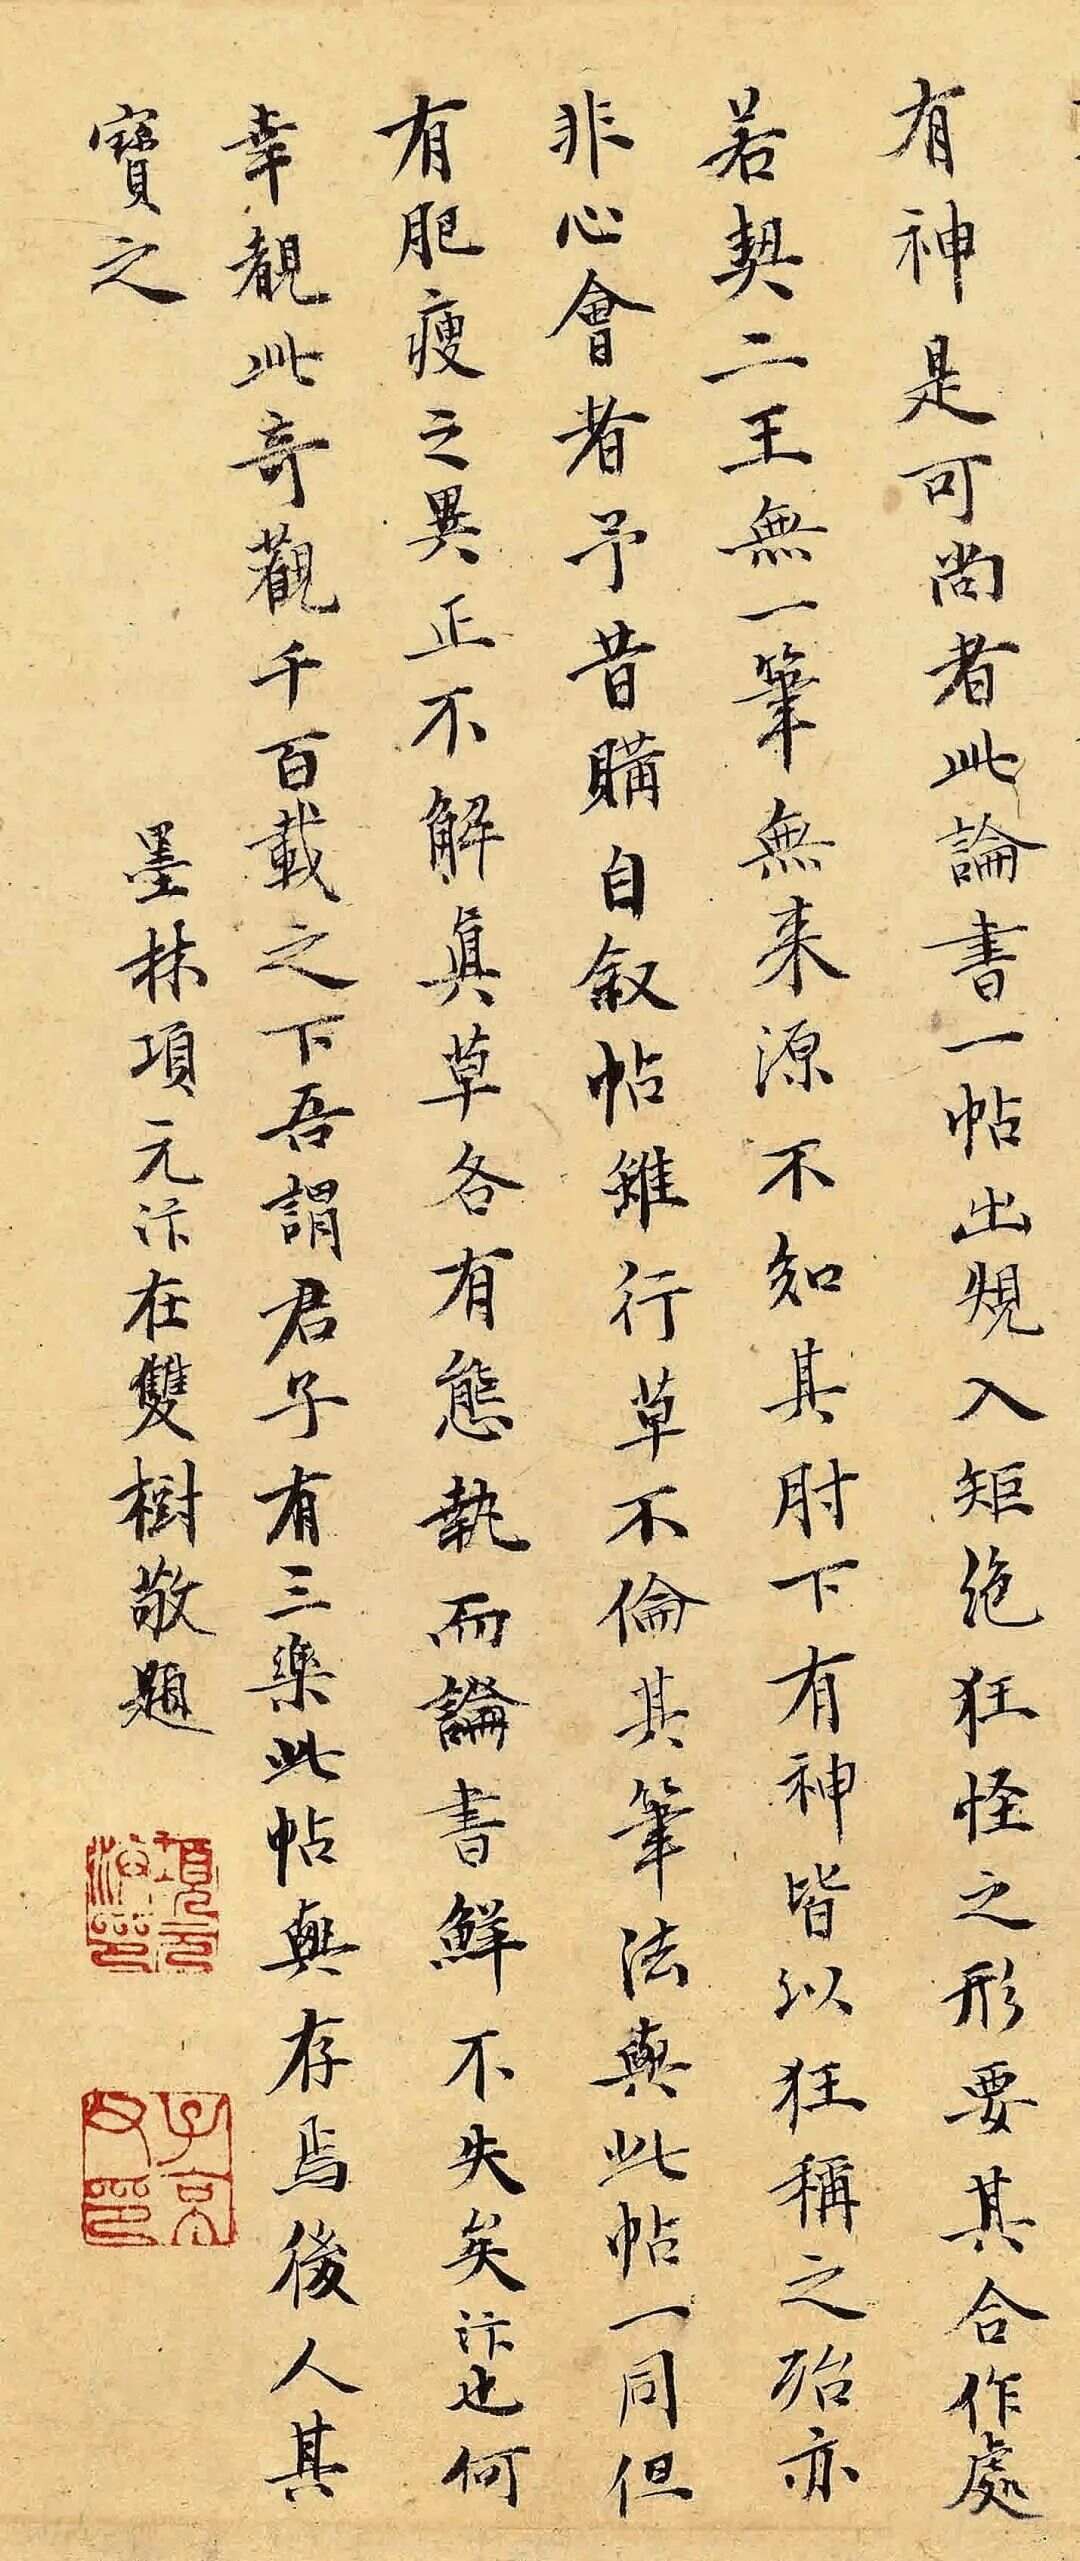 有神是可尚者此論書一帖出規入矩絶狂怪之形要其合作處
若契二王無一筆無来源不知其肘下有神皆以狂稱之殆亦
非心會者予昔購自叙帖雖行草不倫其筆法與此帖一同但
有肥瘦之異正不解真草各有態執而論書鮮不失矣汴也何
幸覩此奇觀千百載之下吾謂君子有三樂此帖與存焉後人其
寶之
墨林項元汴在雙樹敬題
項元汴印
子京父印